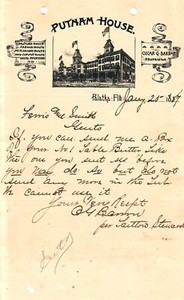 PUTNAM HOUSE.
OSCAR G. BARRON
PROPRIETOR
Palatka, Fla. Jany 25th 1887
Ferris Mc Smith
Gents
If you can send me a
of your No 1 Table Butter Like
the one you sent me before
you may do so but do not
send any more in the Tub
I cannot use it
Yours Very Respt
O G Barron
per Steward